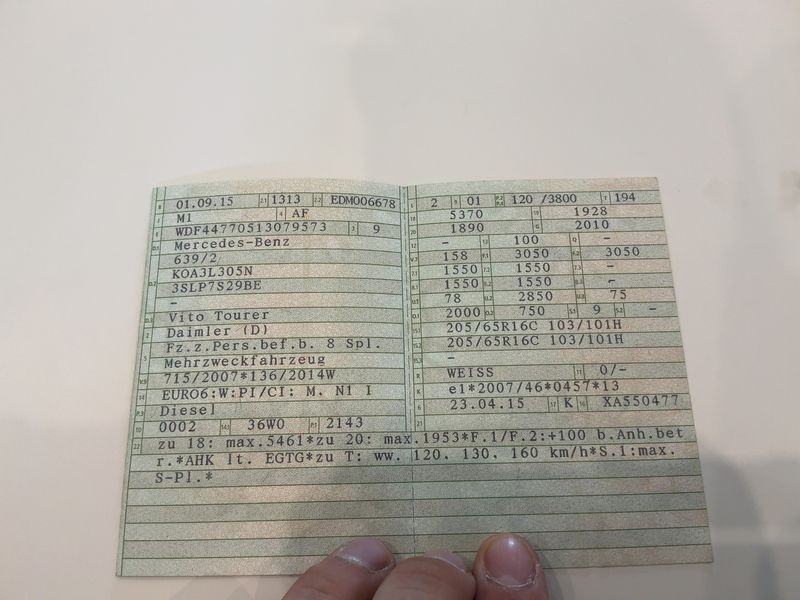 B 01.09.15 2.1 1313 2.2 EDM006678
J M1 4 AF
E WDF44770513079573 3 9
D.1 Mercedes-Benz
639/2
D.2 KOA3L305N
3SLP7S29BE
-
D.3 Vito Tourer
2 Daimler (D)
5 Fz.z.Pers.bef.b. 8 Spl.
Mehrzweckfahrzeug
V.9 715/2007*136/2014W
14 EURO6:W:PI/CI: M, N1 I
P.3 Diesel
10 0002 14.1 36W0 P.1 2143
L 2 9 01 P.2 P.4 120 /3800 T 194
18 5370 19 1928
20 1890 G 2010
12 - 13 100 Q -
V.7 158 F.1 3050 F.2 3050
7.1 1550 7.2 1550 7.3 -
8.1 1550 8.2 1550 8.3 -
U.1 78 U.2 2850 U.3 75
O.1 2000 O.2 750 S.1 9 S.2 -
15.1 205/65R16C 103/101H
15.2 205/65R16C 103/101H
15.3 -
R WEISS 11 0/-
K e1*2007/46*0457*13
6 23.04.15 17 K 16 XA550477
21
22 zu 18: max.5461*zu 20: max.1953*F.1/F.2:+100 b.Anh.bet
r.*AHK lt. EGTG*zu T: ww. 120, 130, 160 km/h*S.1:max.
S-Pl.*